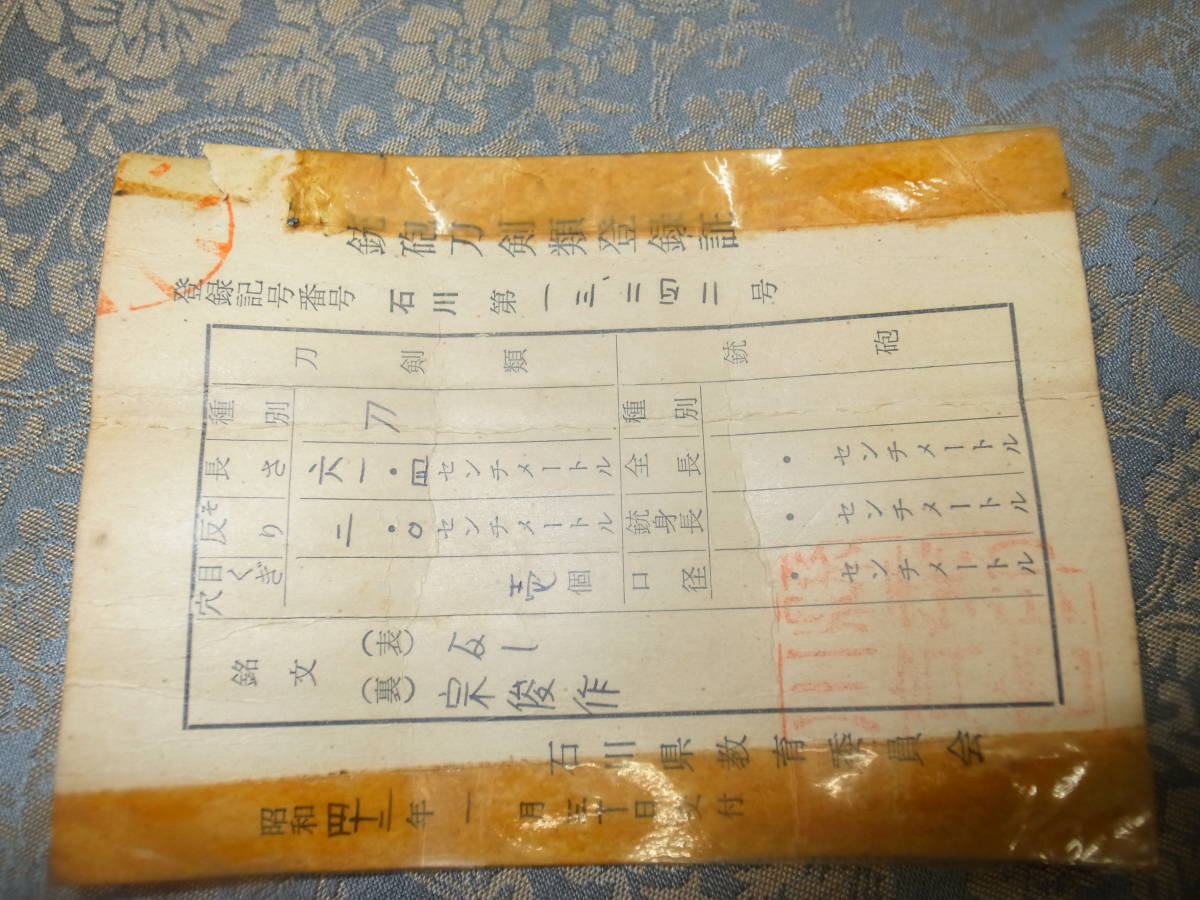 銃砲刀剣類登録証
登録記号番号 石川 第 一三、二四二 号
刀剣類
種別 刀
長さ 六一・四 センチメートル
反り そり 二・〇 センチメートル
目くぎ穴 壱 個
銃砲
種別
全長 ・ センチメートル
銃身長 ・ センチメートル
口径 ・ センチメートル
銘文
(表) なし
(裏) 宗俊作
石川県教育委員会
昭和四十三年一月 日交付